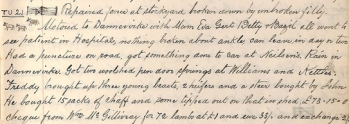 TU 21 Repaired fence at stockyard broken down by unbroken filly.
Motored to Dannevirke with Mum Eva Gert Betty & Basil all went to
see patient in Hospital, nothing broken about ankle, can leave in day or two
Had a puncture on road, got something done to car at Neilson's. Rain in
Dannevirke. Got two worshed pen door springs at Williams and Kettle's.
Freddy brought up three young beasts, 2 heifers and a steer bought by John
He bought 15 sacks of chaff and some tipped out on that worked. £73-15-0
cheque from Wm McGillivray for 72 lambs at £1 and ewe 35/- and exchange 2/-